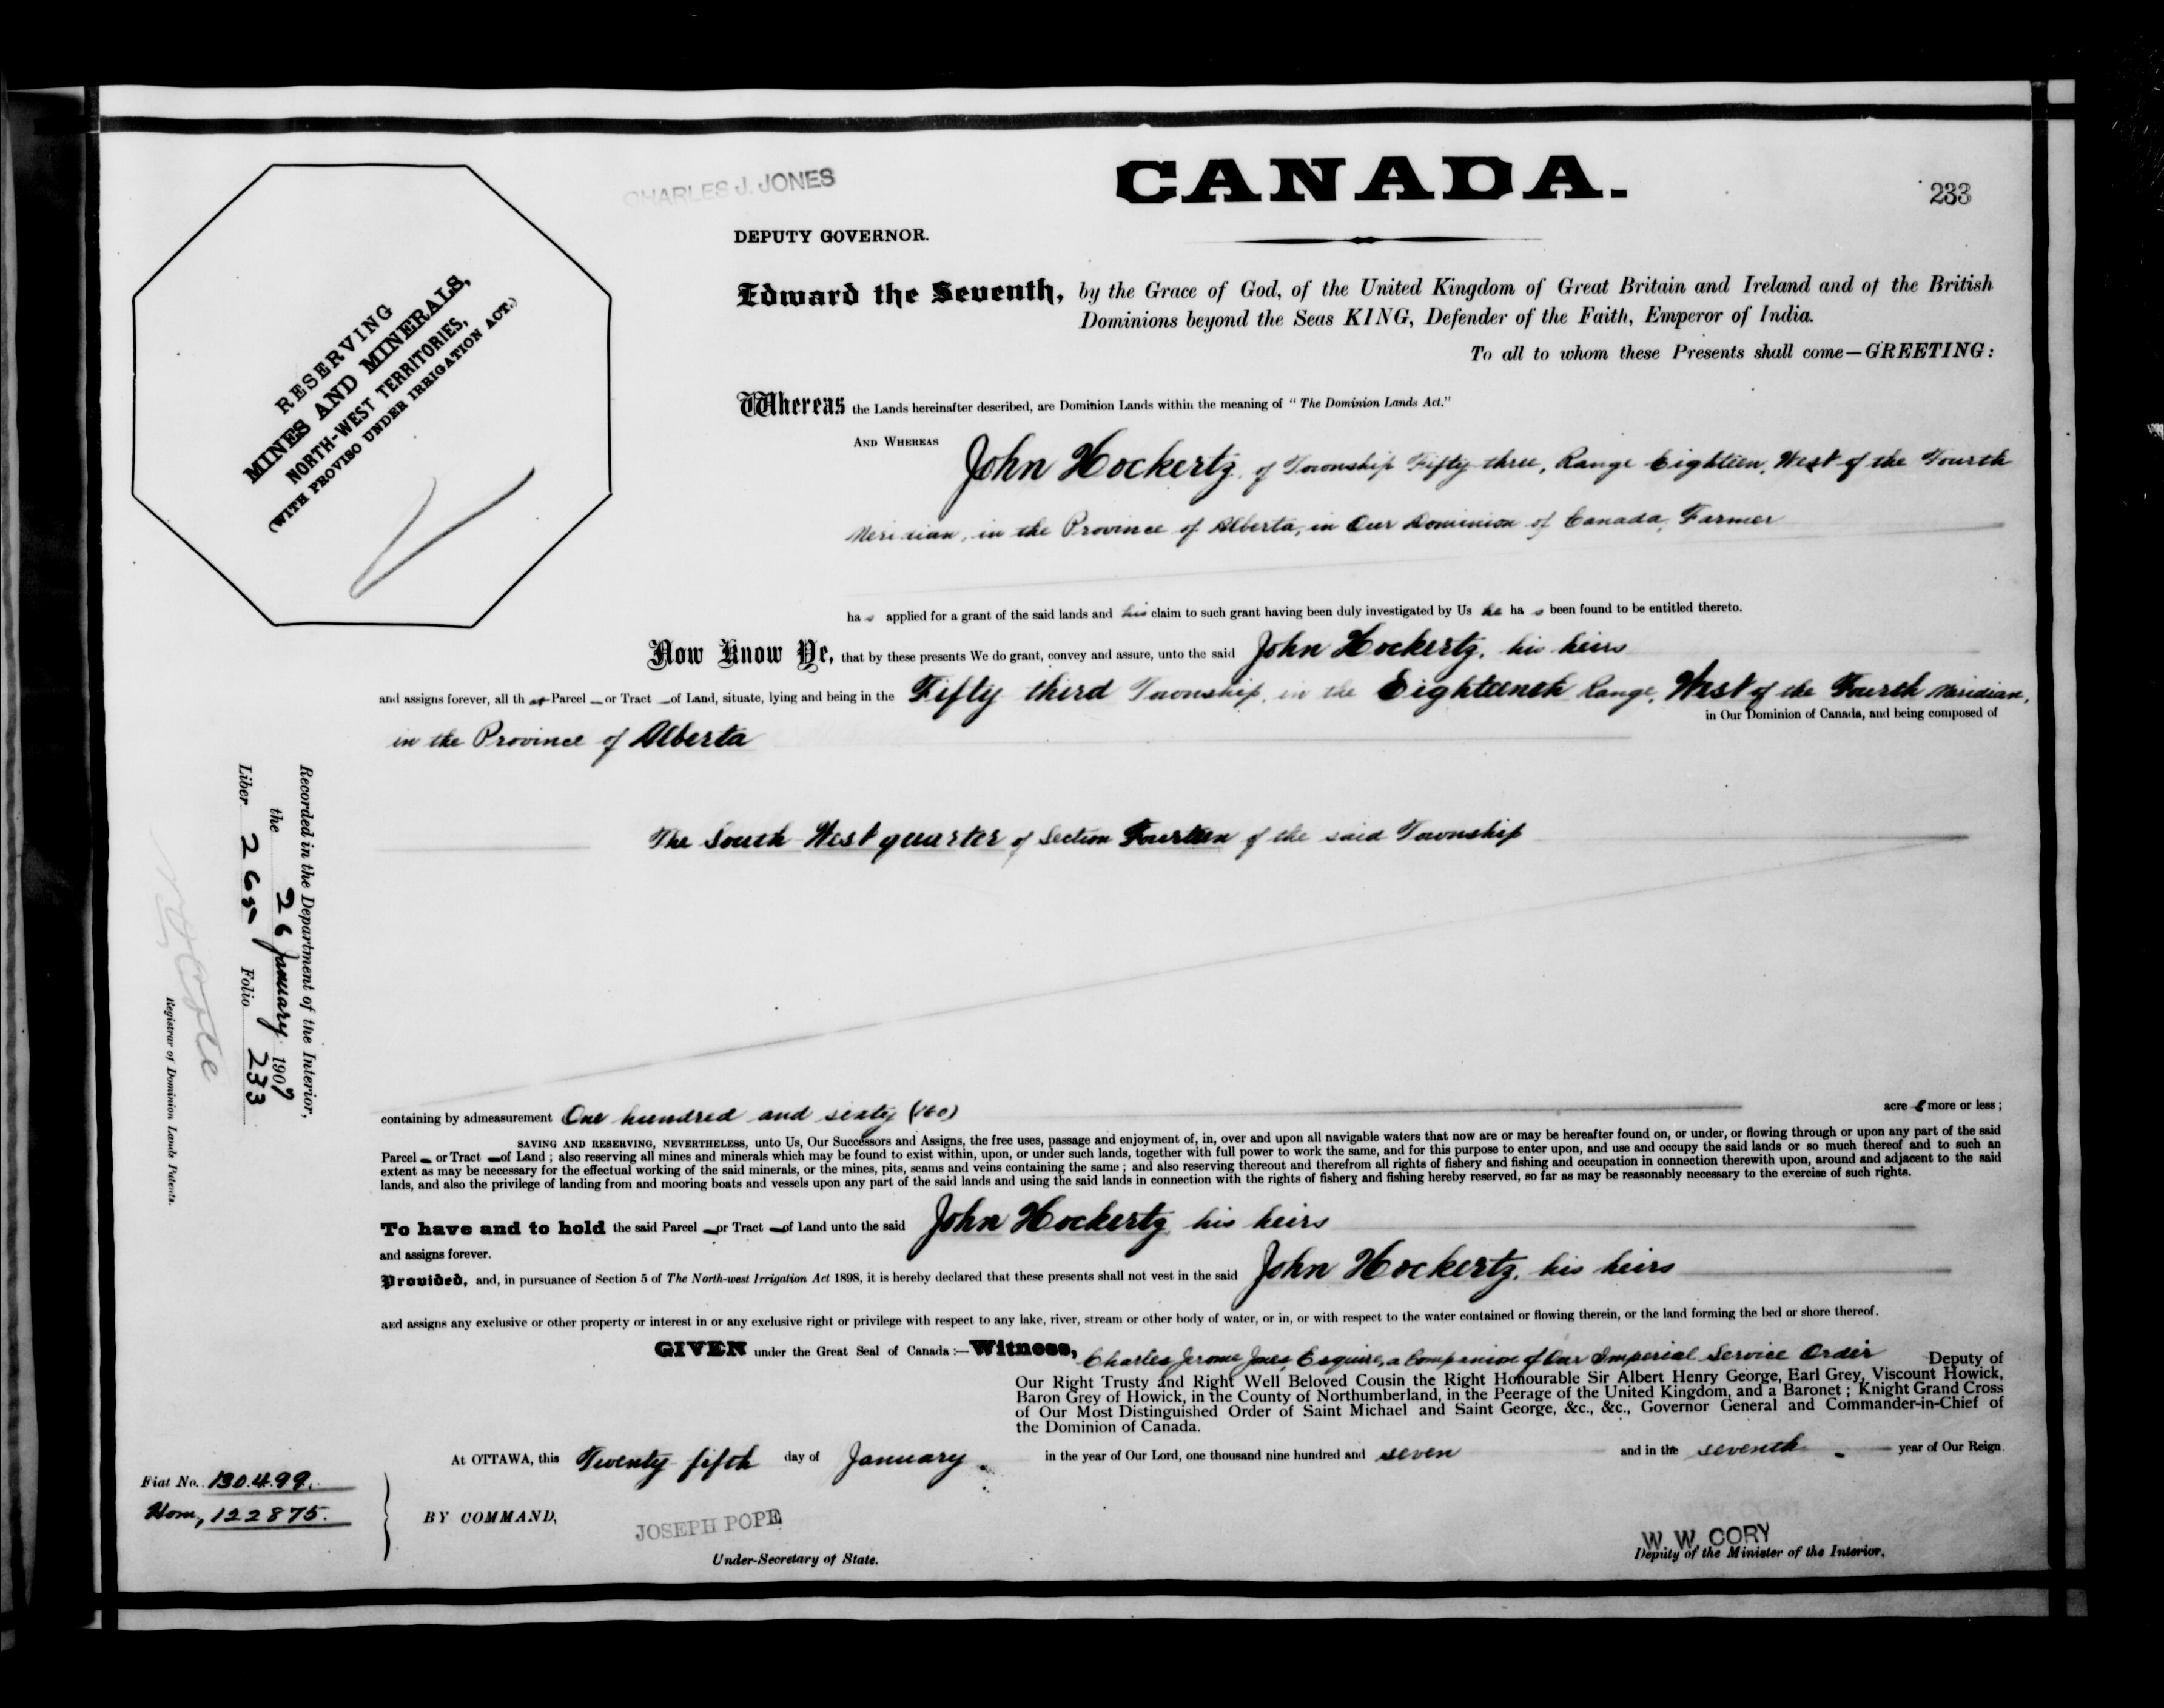 CHARLES J. JONES
CANADA.
233
DEPUTY GOVERNOR.
RESERVING
MINES AND MINERALS,
NORTH-WEST TERRITORIES,
(WITH PROVISO UNDER IRRIGATION ACT.)
Edward the Seventh, by the Grace of God, of the United Kingdom of Great Britain and Ireland and of the British
Dominions beyond the Seas KING, Defender of the Faith, Emperor of India.
To all to whom these Presents shall come—GREETING:
Whereas the Lands hereinafter described, are Dominion Lands within the meaning of "The Dominion Lands Act."
AND WHEREAS John Hockertz, of Township Fifty three, Range Eighteen, West of the Fourth
Meridian, in the Province of Alberta, in Our Dominion of Canada, Farmer
has applied for a grant of the said lands and his claim to such grant having been duly investigated by Us he has been found to be entitled thereto.
Now Know Ye, that by these presents We do grant, convey and assure, unto the said John Hockertz, his heirs
and assigns forever, all that Parcel or Tract of Land, situate, lying and being in the Fifty third Township, in the Eighteenth Range, West of the Fourth Meridian,
in Our Dominion of Canada, and being composed of
in the Province of Alberta
The South West quarter of Section Fourteen of the said Township
Recorded in the Department of the Interior,
the 26 January 1907
Liber 265 Folio 233
Registrar of Dominion Lands Patents.
containing by admeasurement One hundred and sixty (160) acres more or less;
SAVING AND RESERVING, NEVERTHELESS, unto Us, Our Successors and Assigns, the free uses, passage and enjoyment of, in, over and upon all navigable waters that now are or may be hereafter found on, or under, or flowing through or upon any part of the said
Parcel or Tract of Land; also reserving all mines and minerals which may be found to exist within, upon, or under such lands, together with full power to work the same, and for this purpose to enter upon, and use and occupy the said lands or so much thereof and to such an
extent as may be necessary for the effectual working of the said minerals, or the mines, pits, seams and veins containing the same; and also reserving thereout and therefrom all rights of fishery and fishing and occupation in connection therewith upon, around and adjacent to the said
lands, and also the privilege of landing from and mooring boats and vessels upon any part of the said lands and using the said lands in connection with the rights of fishery and fishing hereby reserved, so far as may be reasonably necessary to the exercise of such rights.
To have and to hold the said Parcel or Tract of Land unto the said John Hockertz his heirs
and assigns forever.
Provided, and, in pursuance of Section 5 of The North-west Irrigation Act 1898, it is hereby declared that these presents shall not vest in the said John Hockertz, his heirs
and assigns any exclusive or other property or interest in or any exclusive right or privilege with respect to any lake, river, stream or other body of water, or in, or with respect to the water contained or flowing therein, or the land forming the bed or shore thereof.
GIVEN under the Great Seal of Canada:—Witness, Charles Jerome Jones, Esquire, a Companion of Our Imperial Service Order Deputy of
Our Right Trusty and Right Well Beloved Cousin the Right Honourable Sir Albert Henry George, Earl Grey, Viscount Howick,
Baron Grey of Howick, in the County of Northumberland, in the Peerage of the United Kingdom, and a Baronet; Knight Grand Cross
of Our Most Distinguished Order of Saint Michael and Saint George, &c., &c., Governor General and Commander-in-Chief of
the Dominion of Canada.
At OTTAWA, this Twenty fifth day of January in the year of Our Lord, one thousand nine hundred and seven and in the seventh year of Our Reign.
Fiat No. 130499.
Hom, 122875.
BY COMMAND,
JOSEPH POPE
Under-Secretary of State.
W. W. CORY
Deputy of the Minister of the Interior.